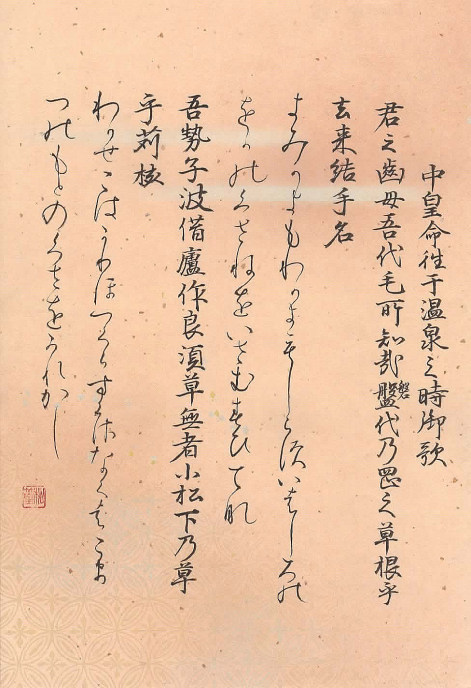 中皇命徃于温泉之時御歌
君之齒母吾代毛所知哉盤代乃岡之草根乎
磐
去来結手名
みかよもわかよ いはしろの
をかのくさねをいさむすひてな
吾勢子波借廬作良須草無者小松下乃草
乎苅核
わかせこはかりほつくらすかやなくはこま
つのもとのくさをかれかし